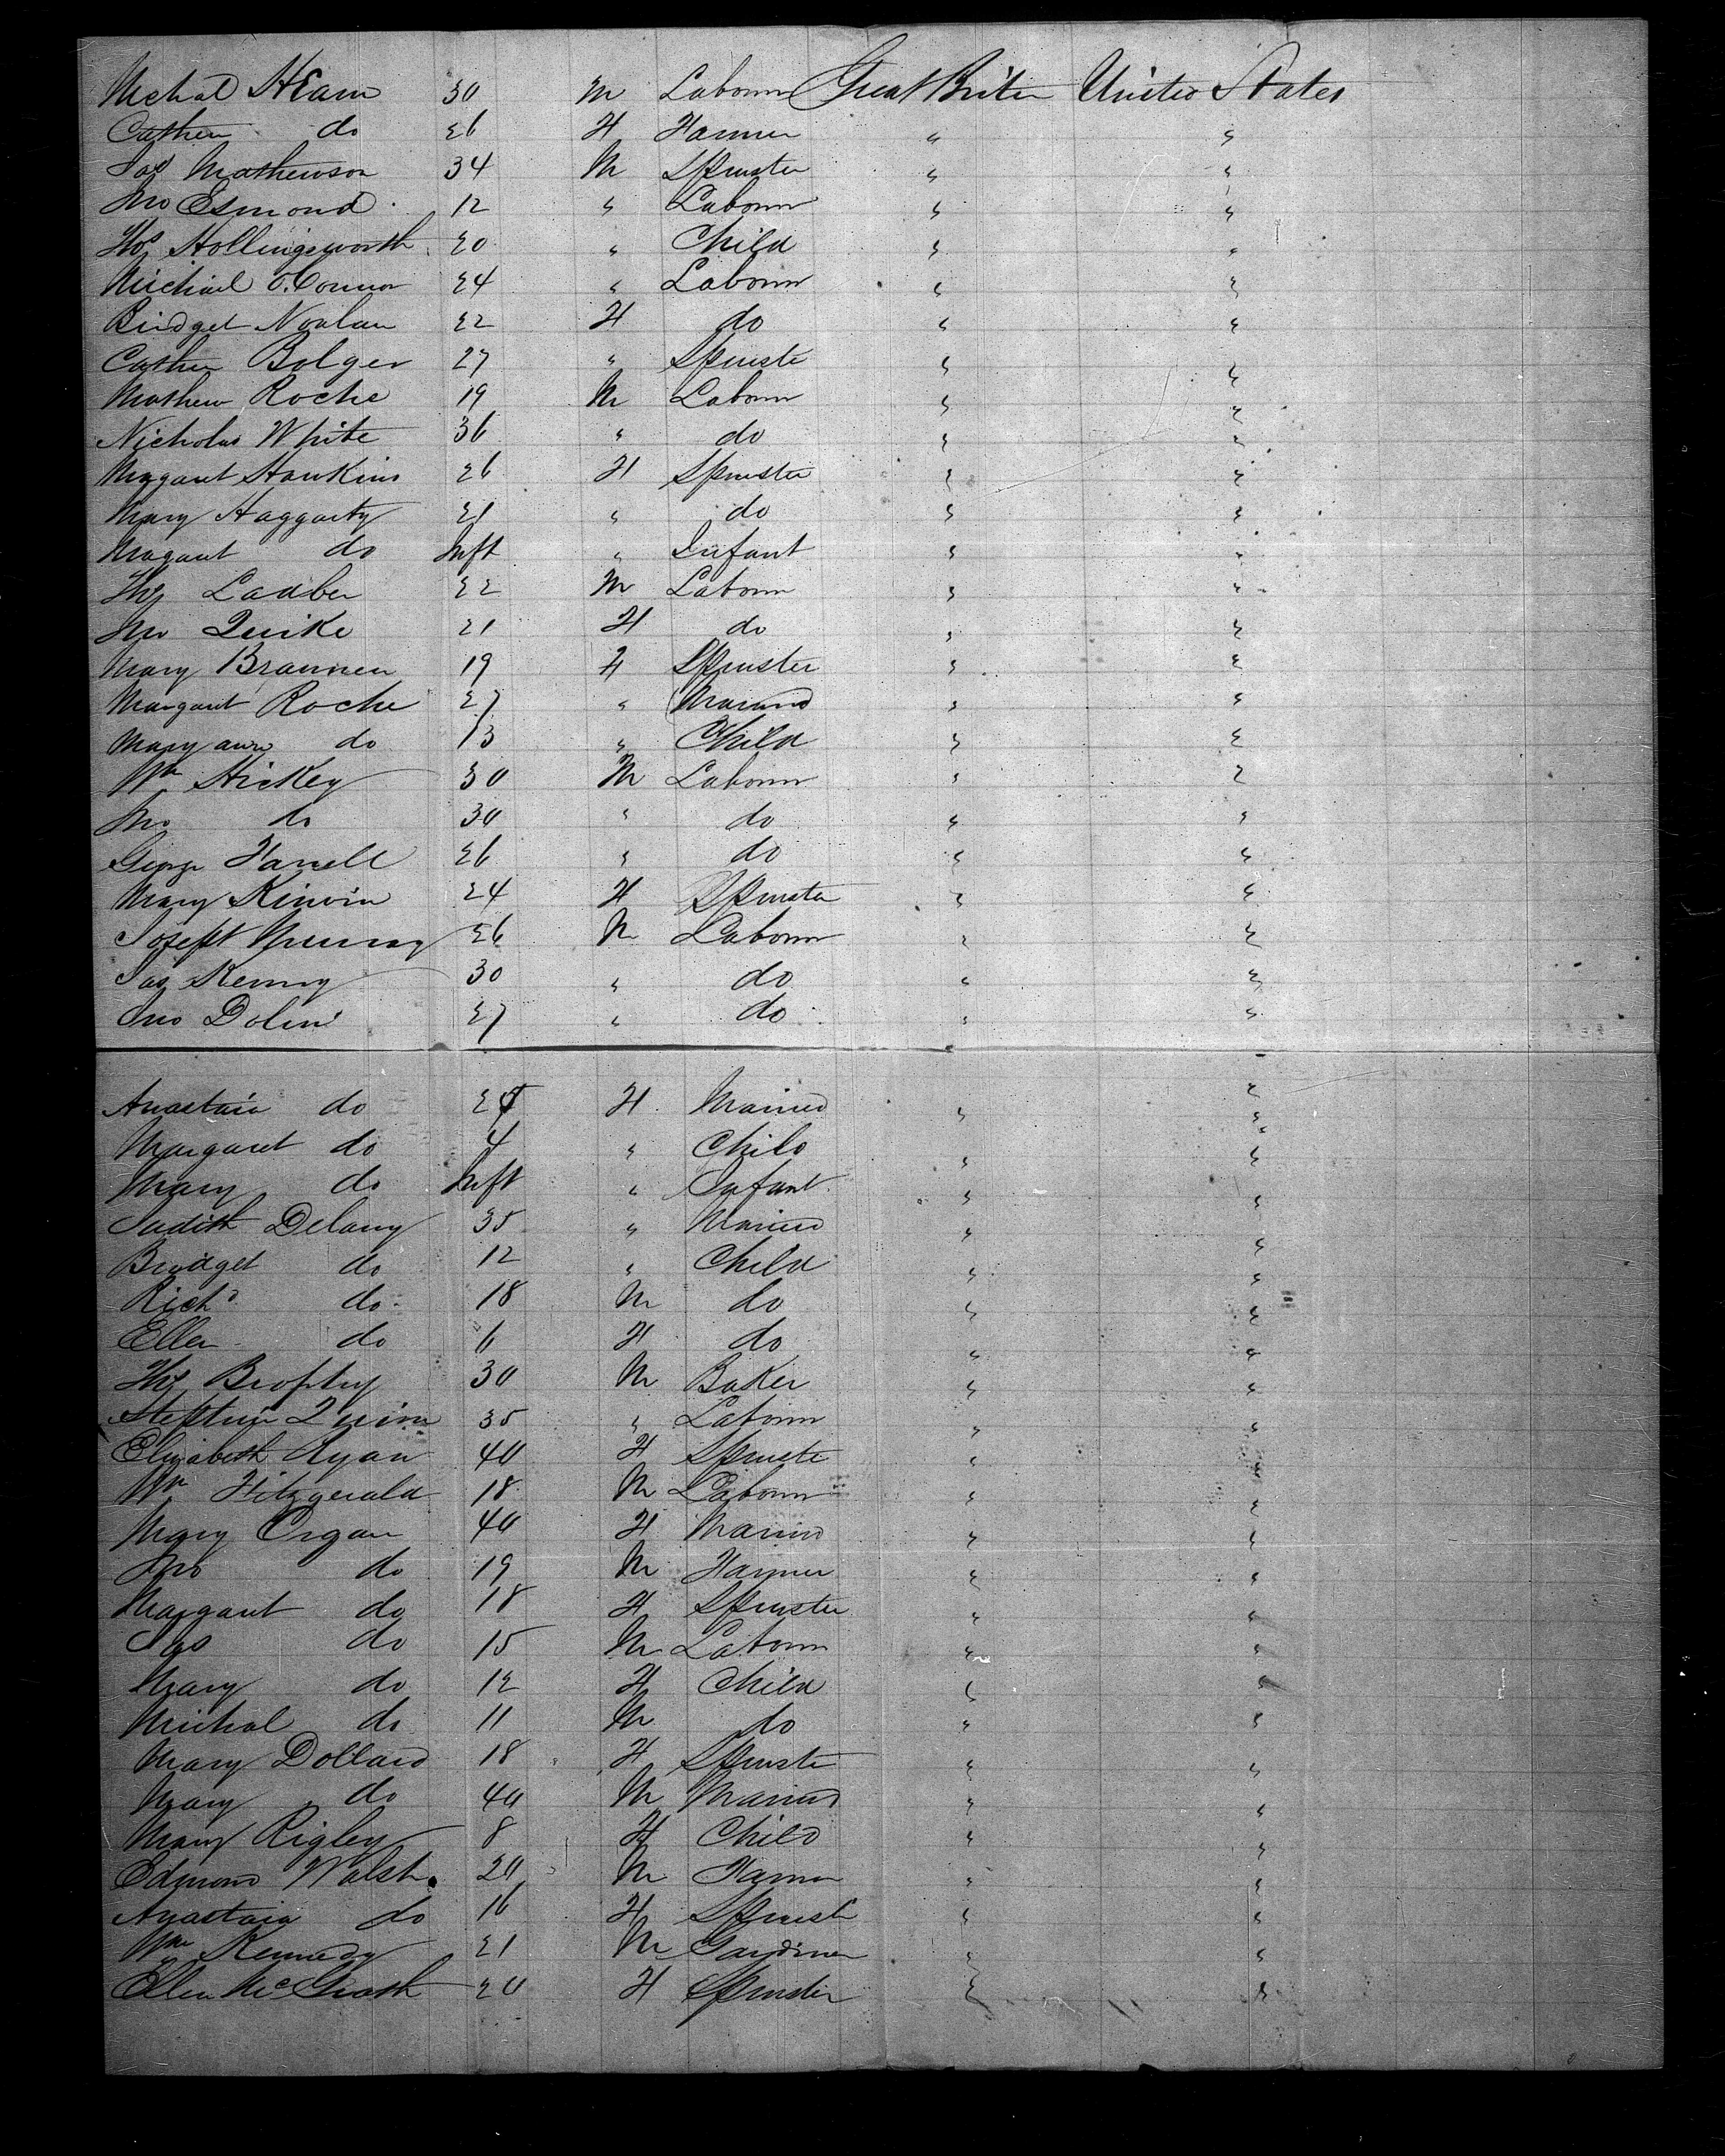 Michal Hearn 30 M Labourr Great Briten United States
Cathen do 26 F Farmer " "
Jas Mathewson 34 M Spinster " "
Jno Esmond 12 " Labourr " "
Thos Hollingsworth 20 " Child " "
Michael O.Connor 24 " Labourr " "
Bridget Nowlan 22 F do " "
Cathen Bolger 27 " Spinste " "
Mathew Roche 19 M Labourr " "
Nicholas White 36 " do " "
Magaret Hawkins 26 F Spinster " "
Mary Haggarty 21 " do " "
Magaret do Inft " Infant " "
Thos Ladber 22 M Labourr " "
Jno Quike 21 F do " "
Mary Brannen 19 F Spinster " "
Margaret Roche 27 " Married " "
Mary ann do 13 " Child " "
Wm Hickey 30 M Labourr " "
Jno do 30 " do " "
George Farrell 26 " do " "
Mary Kirwin 24 F Spinster " "
Joseph Murray 26 M Labourr " "
Jas Kenny 30 " do " "
Jno Dolin 27 " do " "
Anastaia do 24 F Married " "
Margaret do 4 " Child " "
Mary do Inft " Infant " "
Judith Delany 35 " Married " "
Bridget do 12 " Child " "
Richd do 18 M do " "
Ellen do 6 F do " "
Thos Brophy 30 M Baker " "
Stephen Quinn 35 " Labourr " "
Elizabeth Ryan 40 F Spinste " "
Wm Fitzgerald 18 M Labourr " "
Mary Organ 40 F Married " "
Jno do 19 M Farmer " "
Margaret do 18 F Spinster " "
Jas do 15 M Labourr " "
Mary do 12 F Child " "
Michal do 11 M do " "
Mary Dollard 18 F Spinste " "
Mary do 40 M Married " "
Mary Rigley 8 F Child " "
Edmond Walsh 20 M Farmer " "
Anastaia do 16 F Spinst " "
Wm Kennedy 21 M Gardiner " "
Ellen McGrath 20 F Spinster " "